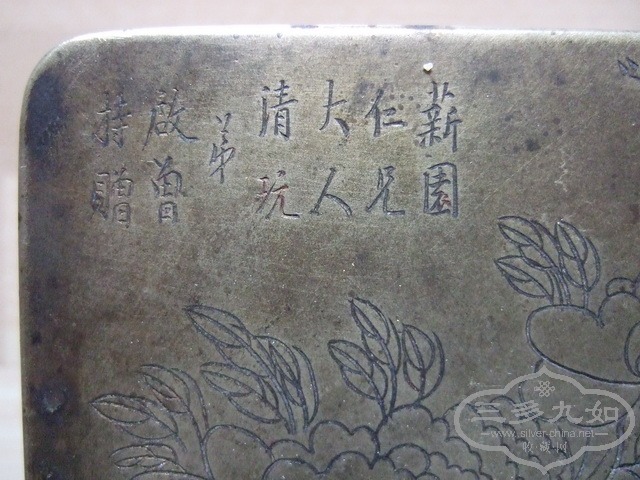 薪園
仁兄
大人
清玩
弟
啟曽
持贈
三多九如
www.silver-china.net
收藏网